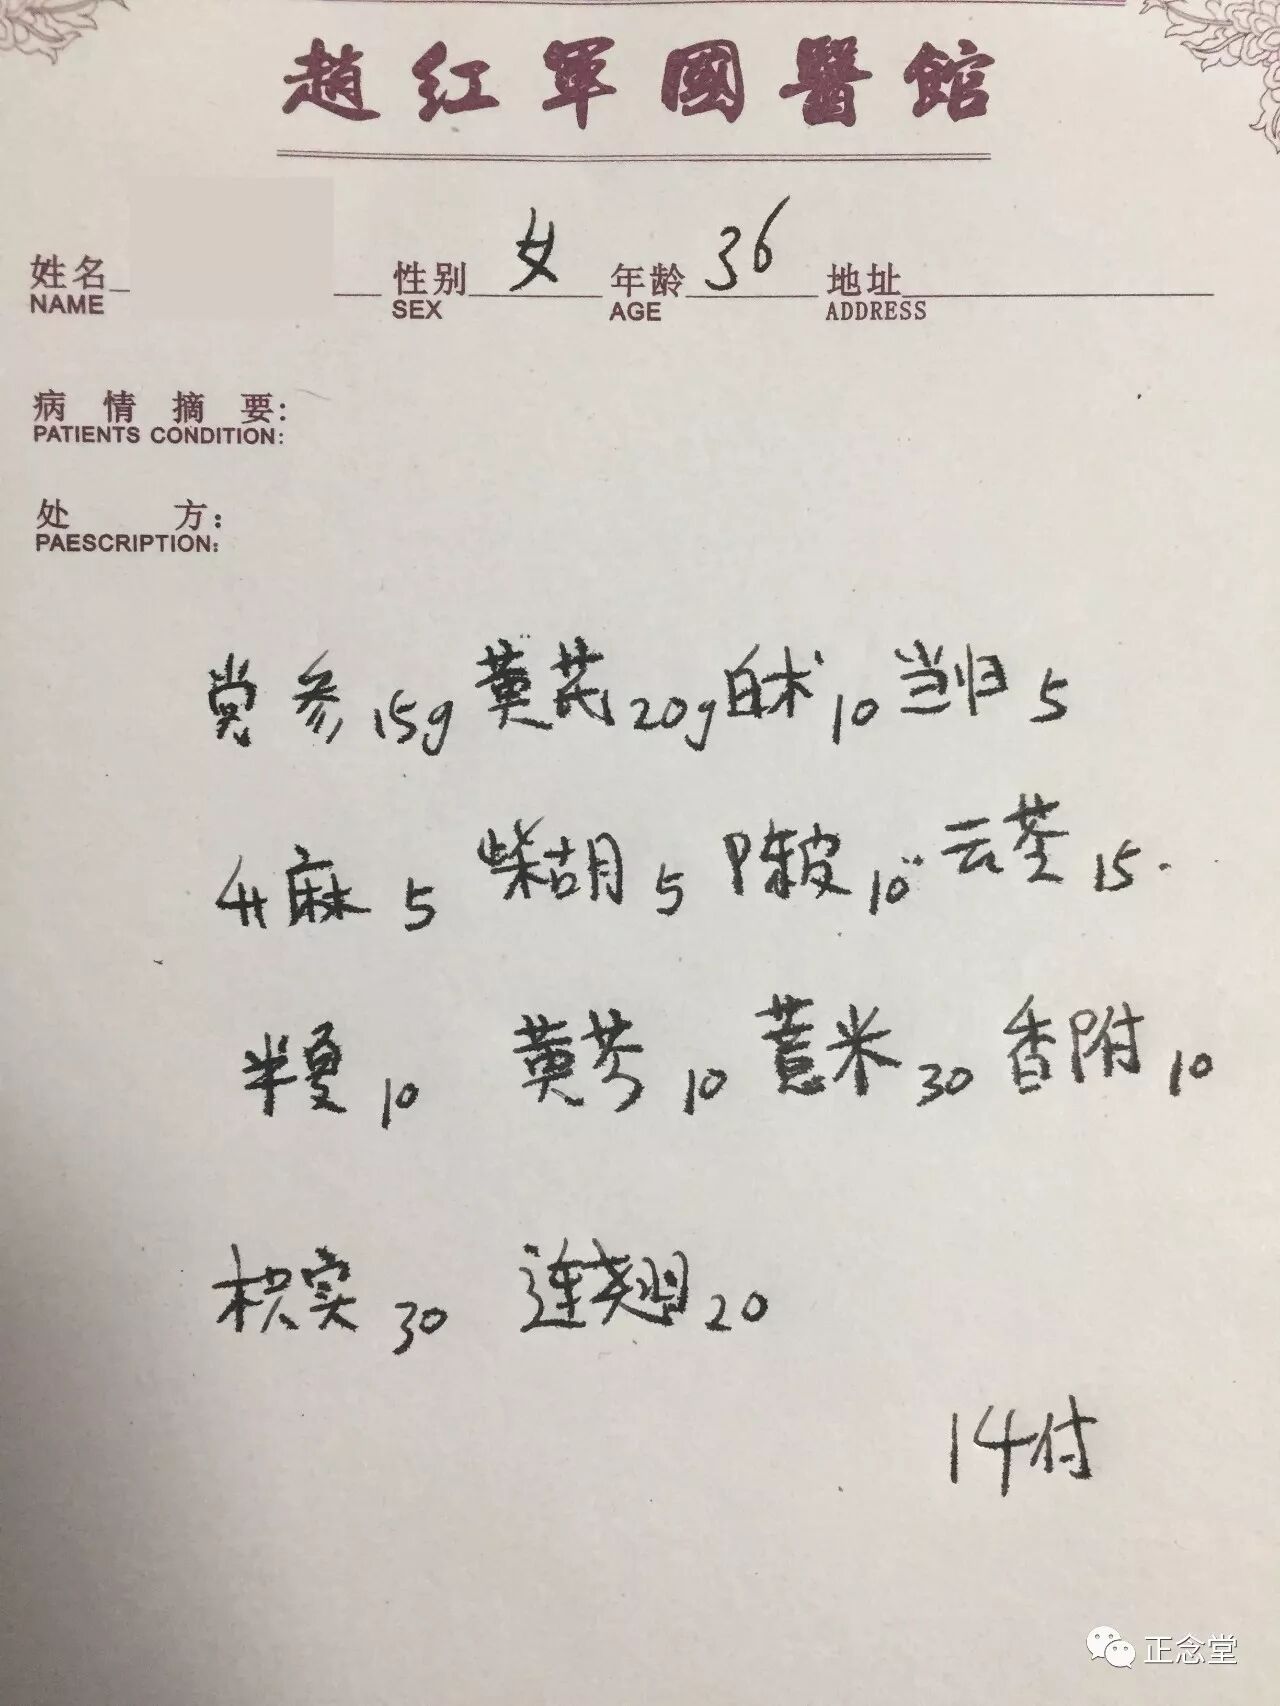 趙红軍國醫館
姓名 性别 女 年龄 36 地址
NAME SEX AGE ADDRESS
病情摘要:
PATIENTS CONDITION:
处方:
PAESCRIPTION:
党参 15g 黄芪 20g 白术 10 当归 5
升麻 5 柴胡 5 陈皮 10 云苓 15
半夏 10 黄芩 10 薏米 30 香附 10
枳实 30 连翘 20
14付
正念堂